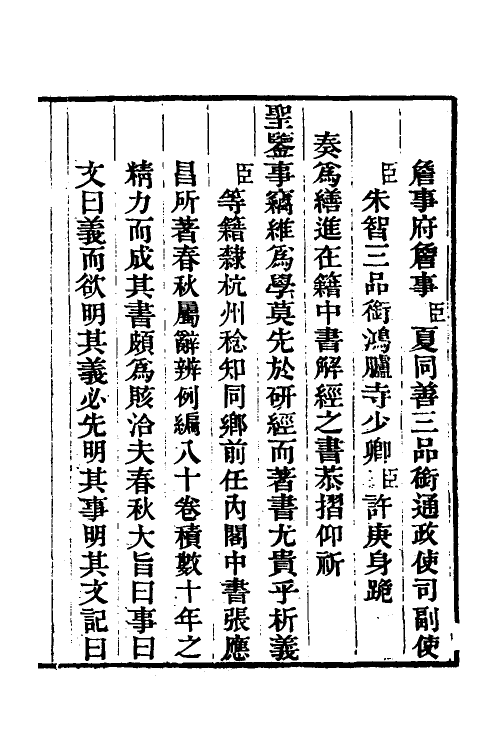 詹事府詹事臣夏同善三品銜通政使司副使
臣朱智三品銜鴻臚寺少卿臣許庚身跪
奏爲繕進在籍中書解經之書恭摺仰祈
聖鑒事竊維爲學莫先於研經而著書尤貴乎析義
臣等籍隸杭州稔知同鄉前任內閣中書張應
昌所著春秋屬辭辨例編八十卷積數十年之
精力而成其書頗爲賅洽夫春秋大旨曰事曰
文曰義而欲明其義必先明其事明其文記曰